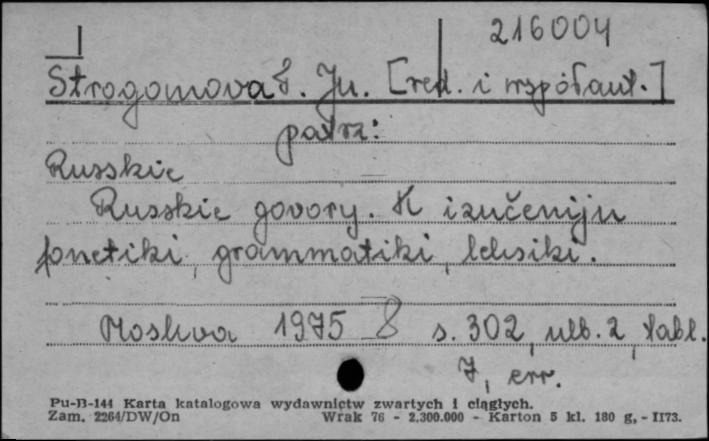 216004
Strogonova S. Ju. [red. i współaut.]
patrz:
Russkie
Russkie govory. K izučeniju
fonetiki, grammatiki, leksiki.
Moskva 1975 8 s. 302, ulb. 2, tabl.
7, err.
Pu-B-144 Karta katalogowa wydawnictw zwartych i ciągłych.
Zam. 2264/DW/On Wrak 76 - 2.300.000 - Karton 5 kl. 180 g, - II73.